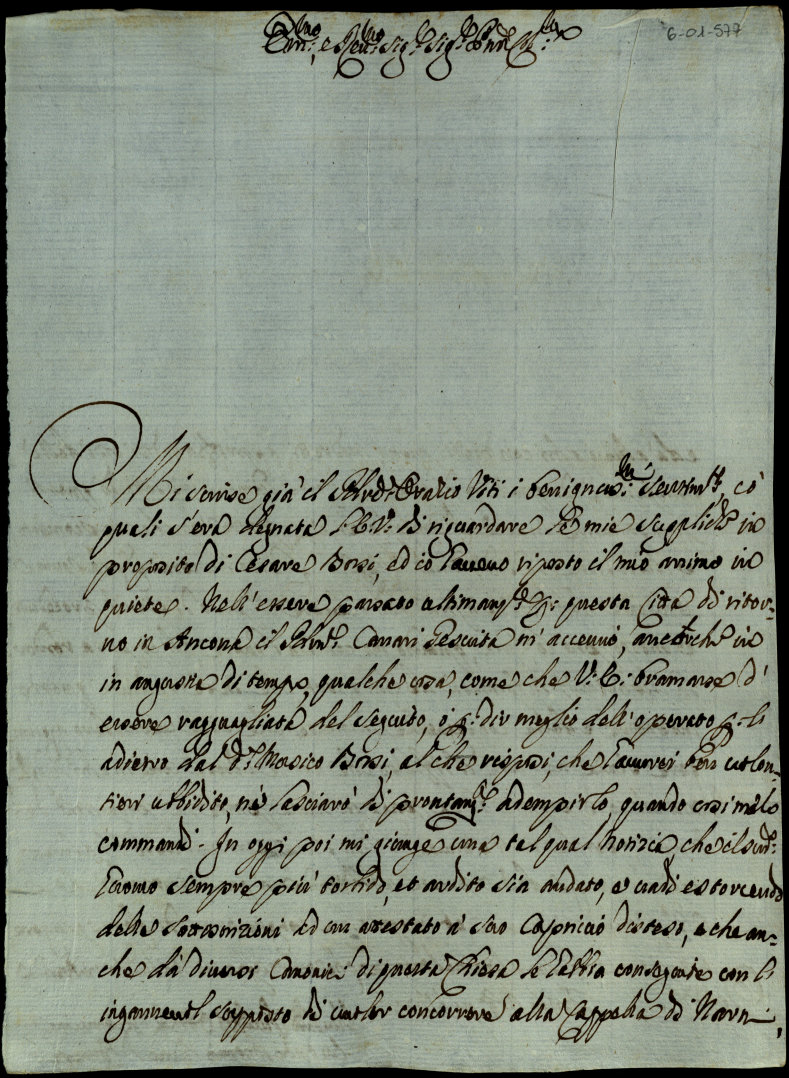 6-01-577
Em:mo, e Rev:mo Sig:r Sig:r P̃rõn Col:mo
Mi scrisse già il Sig:r Orazio Viti i benignissi:mi sentim:ti, cõ
quali s'era degnata l'E.V. di riguardare le mie suppliche in
proposito di Cesare Borsi, ed io havevo riposto il mio animo in
quiete. Nell'essere passato ultimam:te p: questa Città di ritor-
no in Ancona il Canari Gesuita m'accennò, ancorche in
in angustia di tempo, qualche cosa, come che V.E. bramasse d'
essere ragguagliata del seguito, ò p: dir meglio dell'operato p: l'
adietro dal d:o Musico Borsi, al che risposi, che haverei ben volon-
tieri ubbidito, nè lasciarò di prontam:te adempirlo, quando così me lo
commandi. In oggi poi mi giunge una tal qual notizia, che il sud:o
huomo sempre più torbido, et ardito sia andato, e vadi estorcendo
delle sottoscrizioni ad un attestato à suo capriccio disteso, e che an-
che da diversi Canonici di questa Chiesa le habbia conseguite con l'
ingannevol supposto di voler concorrere alla Cappella di Narni,